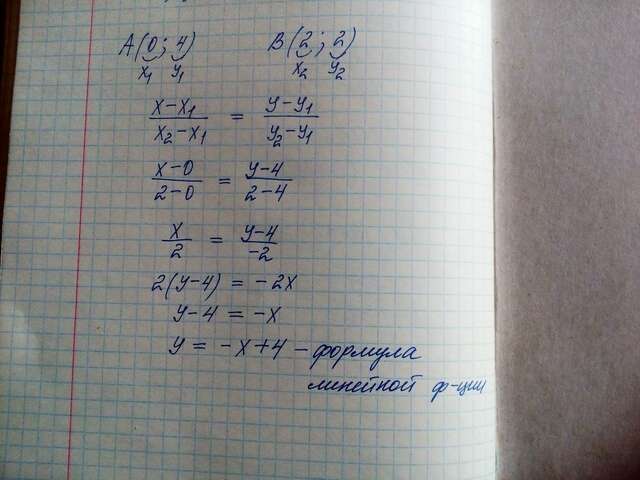 A(0; 4) B(2; 2)
x₁ y₁ x₂ y₂
(x-x₁)/(x₂-x₁) = (y-y₁)/(y₂-y₁)
(x-0)/(2-0) = (y-4)/(2-4)
x/2 = (y-4)/-2
2(y-4) = -2x
y-4 = -x
y = -x+4 - формула
линейной ф-ции